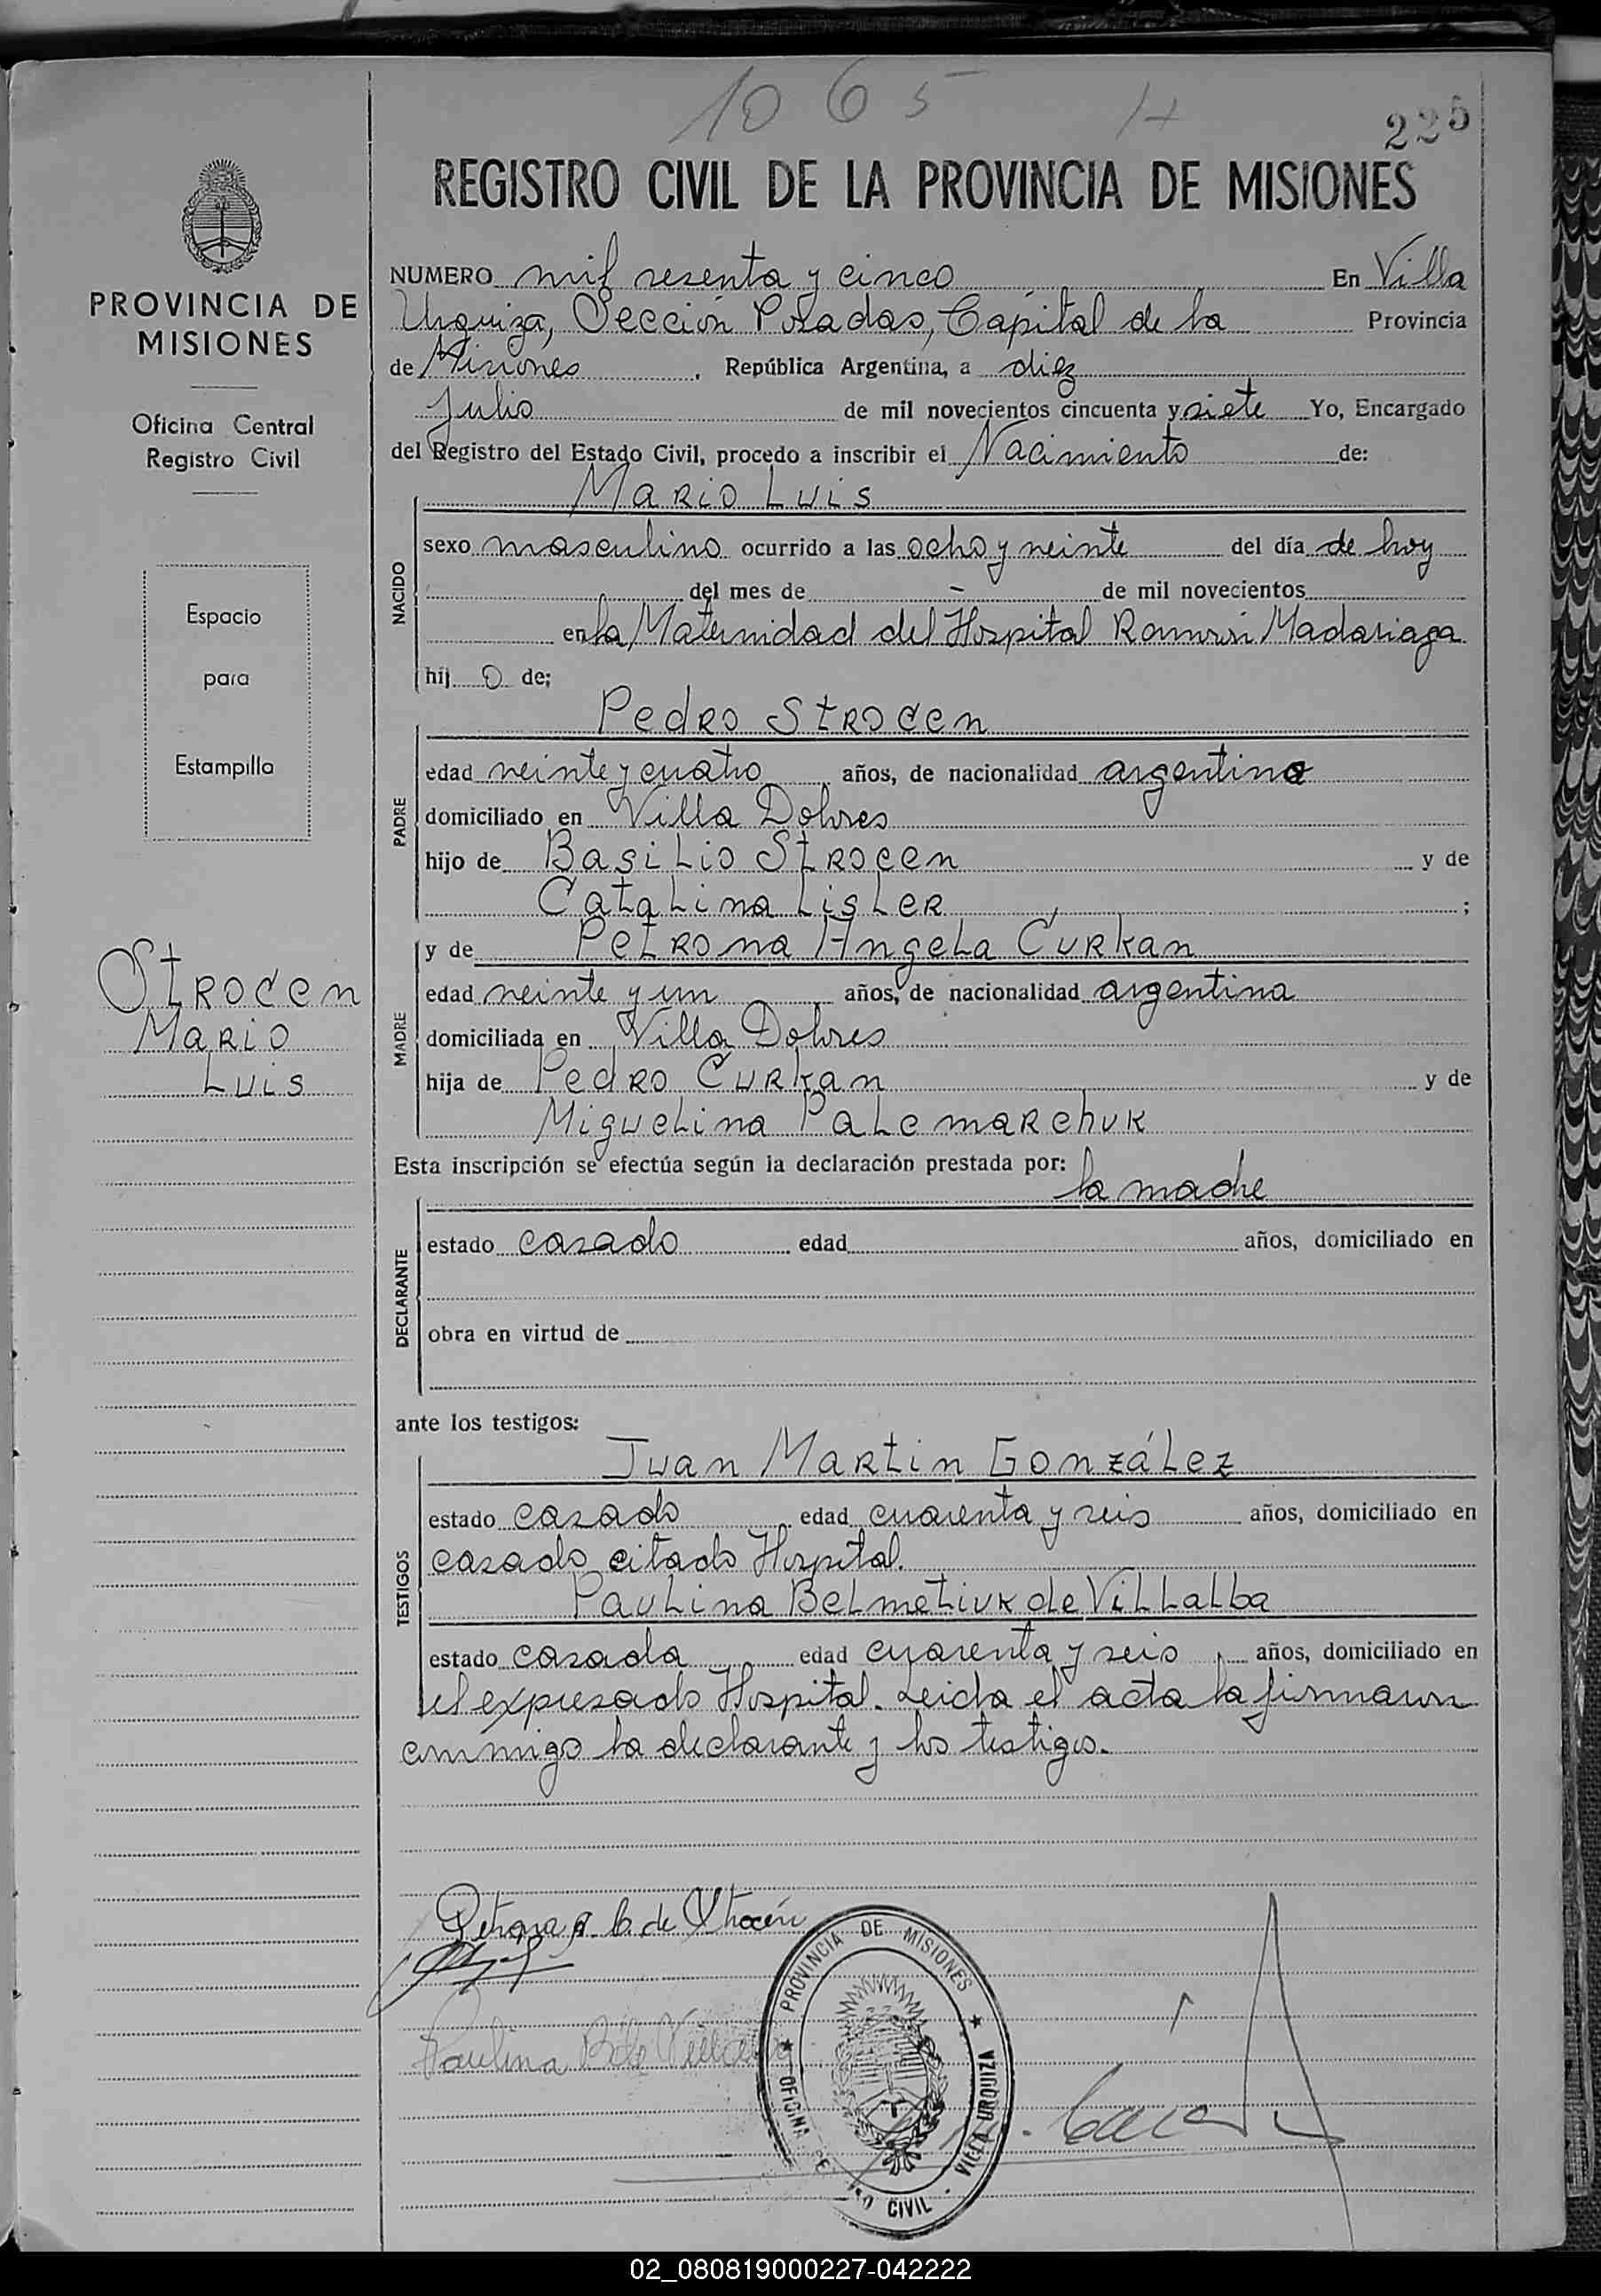 1065
H
225
REGISTRO CIVIL DE LA PROVINCIA DE MISIONES
PROVINCIA DE
MISIONES
Oficina Central
Registro Civil
Espacio
para
Estampilla
Strocen
Mario
Luis
NUMERO mil sesenta y cinco En Villa
Urquiza, Sección Posadas, Capital de la Provincia
de Misiones, República Argentina, a diez
Julio de mil novecientos cincuenta y siete Yo, Encargado
del Registro del Estado Civil, procedo a inscribir el Nacimiento de:
Mario Luis
NACIDO
sexo masculino ocurrido a las ocho y veinte del día de hoy
del mes de - de mil novecientos
en la Maternidad del Hospital Ramón Madariaga
hij o de;
Pedro Strocen
PADRE
edad veinte y cuatro años, de nacionalidad argentino
domiciliado en Villa Dolores
hijo de Basilio Strocen y de
Catalina Lisler ;
y de Petrona Angela Curkan
MADRE
edad veinte y un años, de nacionalidad argentina
domiciliada en Villa Dolores
hija de Pedro Curkan y de
Miguelina Palemarchuk
Esta inscripción se efectúa según la declaración prestada por:
la madre
DECLARANTE
estado casado edad años, domiciliado en
obra en virtud de
ante los testigos:
Juan Martin González
TESTIGOS
estado casado edad cuarenta y seis años, domiciliado en
casado citado Hospital.
Paulina Belmetiuk de Villalba
estado casada edad cuarenta y seis años, domiciliado en
el expresado Hospital. Leida el acta la firmaron
conmigo la declarante y los testigos.
Petrona A. C. de Strocen
Paulina B de Villalba
PROVINCIA DE MISIONES
OFICINA CIVIL
VILLA URQUIZA
02_080819000227-042222